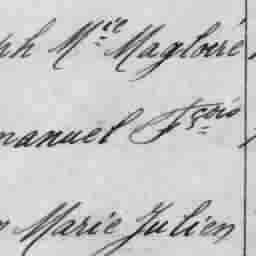 ph Mcie Magloire
manuel Fçois
Marie Julien